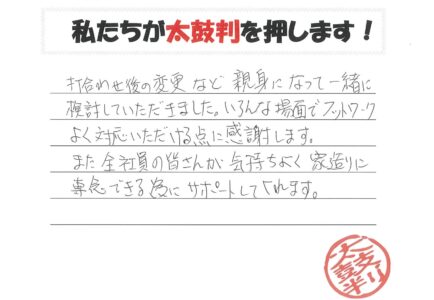 私たちが太鼓判を押します！
打合わせ後の変更など親身になって一緒に
検討していただきました。いろんな場面でフットワーク
よく対応いただける点に感謝します。
また全社員の皆さんが気持ちよく家造りに
専念できる為にサポートしてくれます。
太鼓判